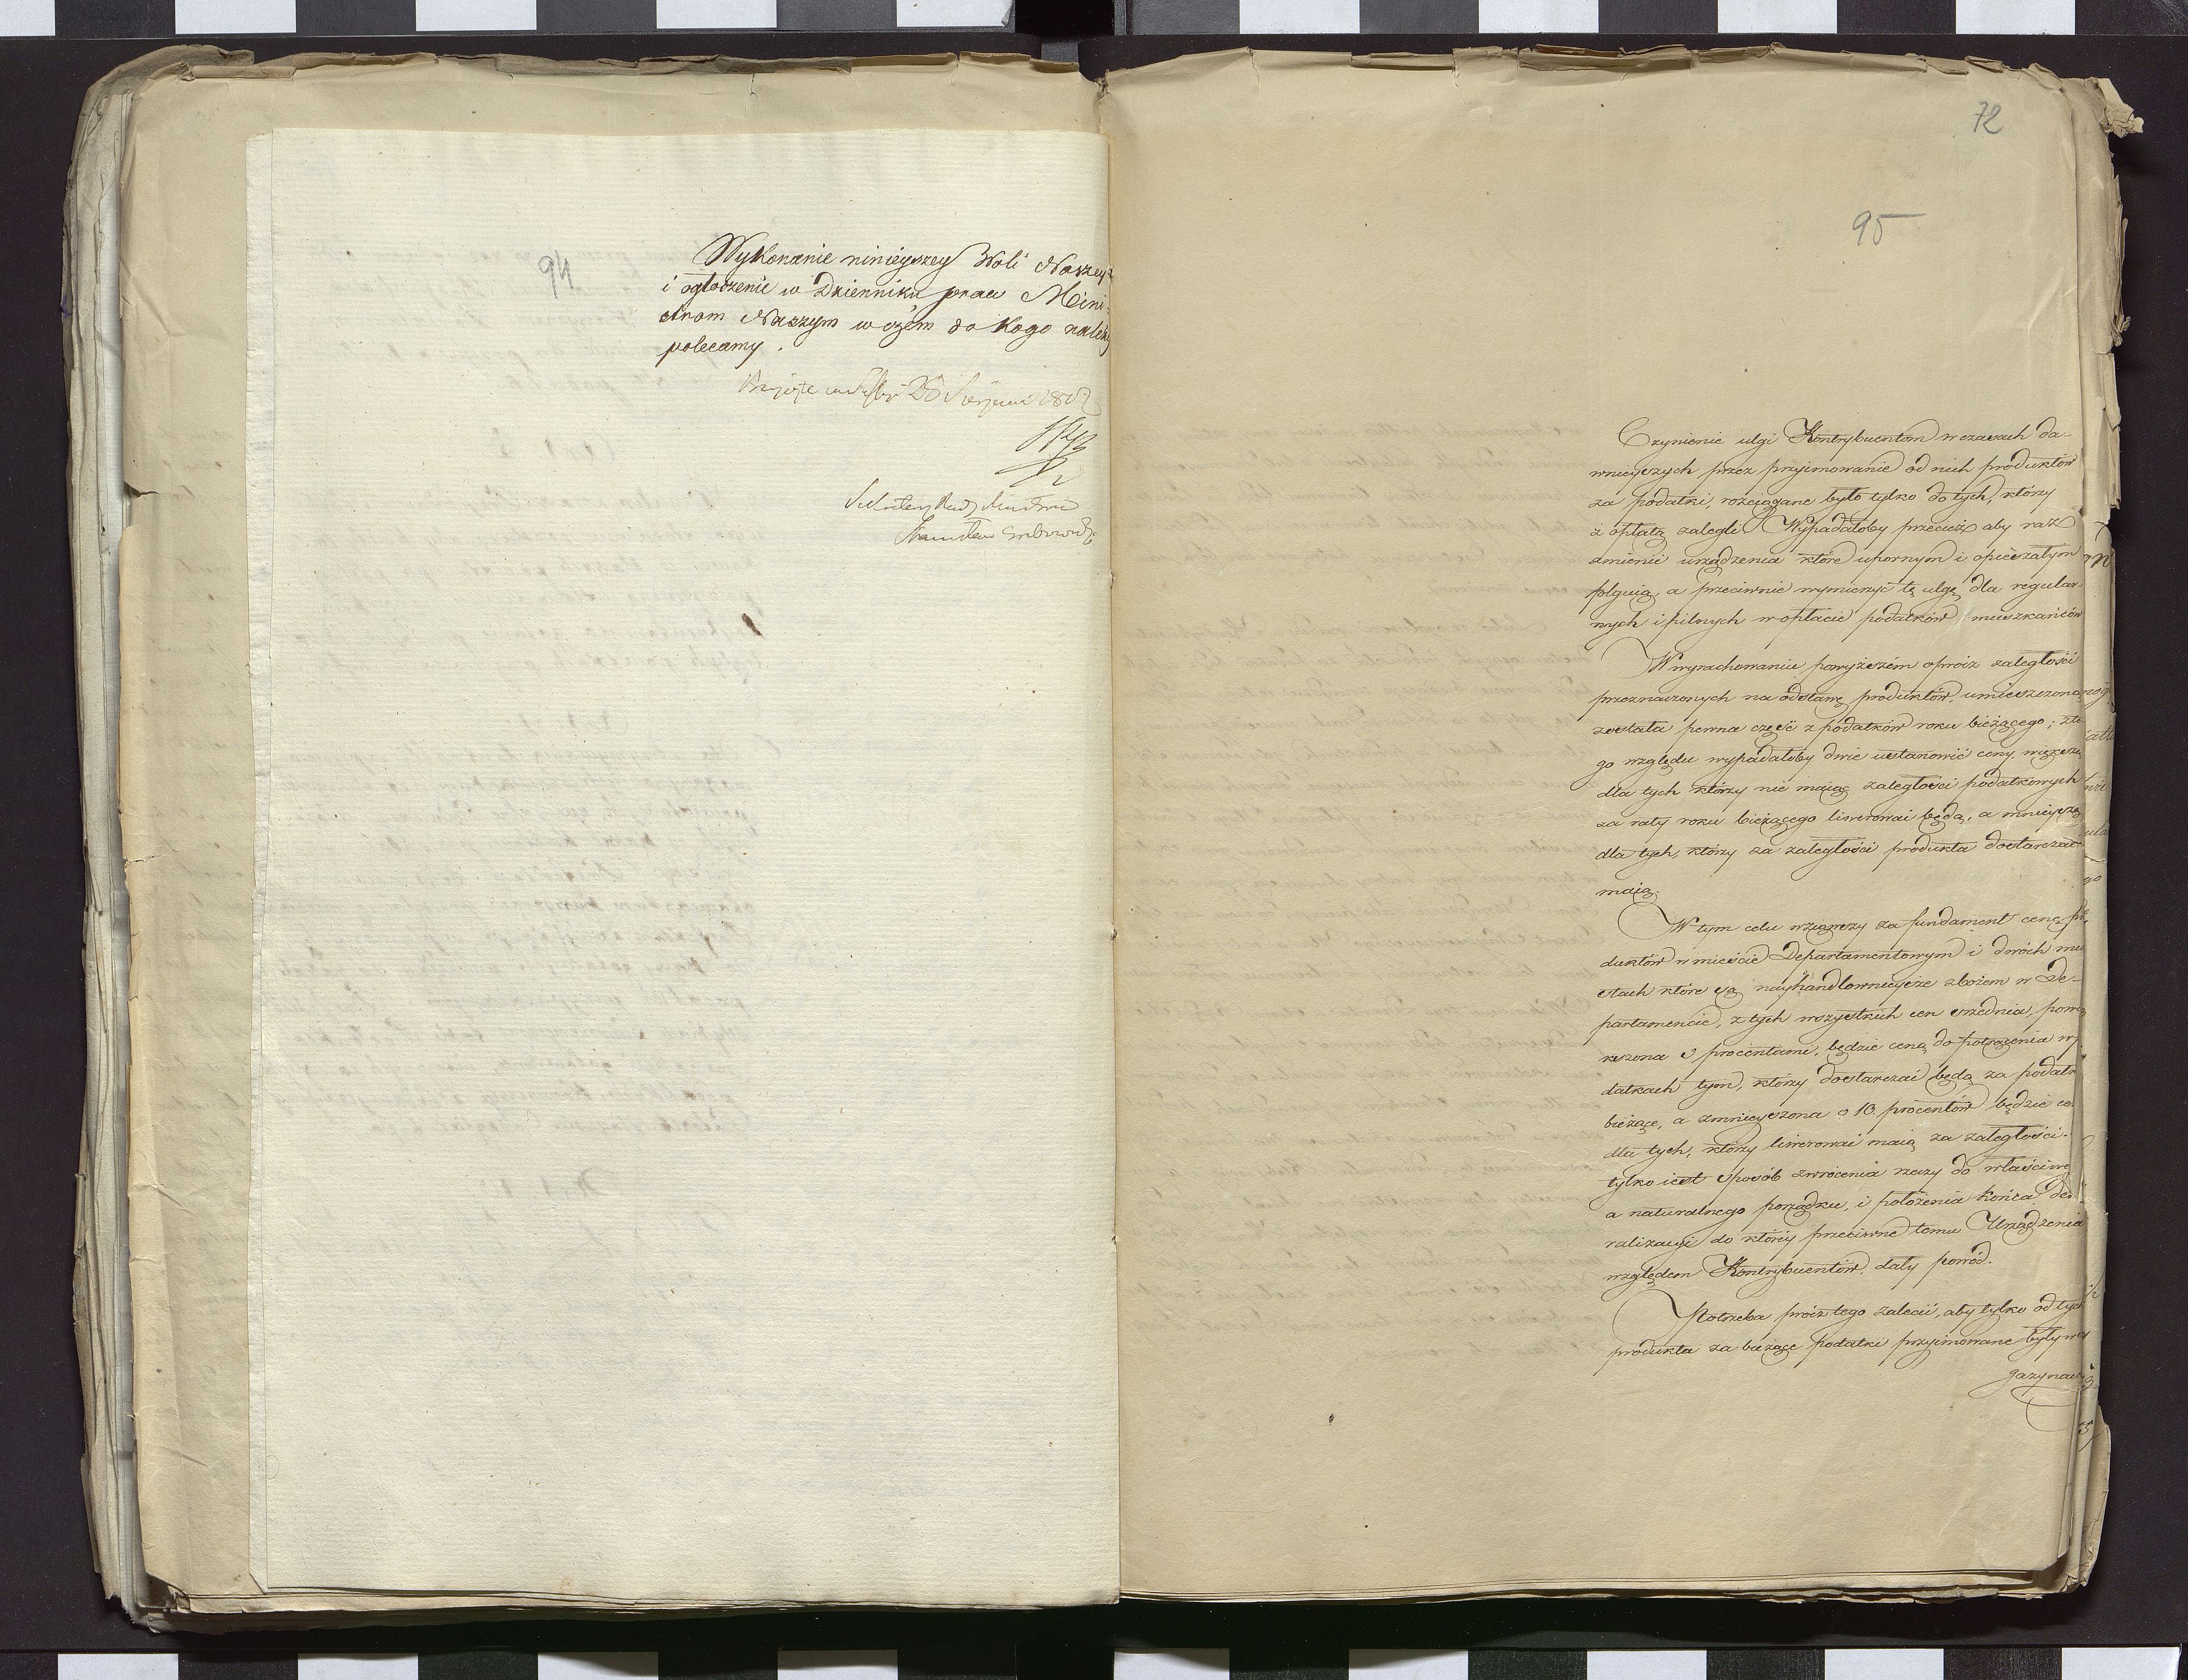 94
Wykonanie ninieyszey Woli Naszey
i ogłoszenie w Dzienniku praw Mini-
strom Naszym w czém do kogo należy
polecamy.
28 Sierpnia
Stanisław Grabowski
72
95
Czynienie ulgi Kontrybuentom w czasach da-
wnieyszych przez przyimowanie od nich produktów
za podatki, rozciągane było tylko do tych, którzy
z opłatą zalegli. Wypadałoby przecież aby raz
zmienić urządzenia które upornym i opieszałym
folguią, a przeciwnie wymierzyć tę ulgę dla regular-
nych i pilnych w opłacie podatków mieszkańców
W wyrachowaniu powyższém oprócz zaległości
przeznaczonych na odstawę produktów, umieszczoną
została pewna część z podatków roku bieżącego; z te
go względu wypadałoby dwie ustanowić ceny, większą
dla tych którzy nie maiąc zaległości podatkowych
za raty roku bieżącego liwerować będą, a mnieyszą
dla tych, którzy za zaległości produkta dostarczać
maią.
W tym celu wziąwszy za fundament cenę pro
duktów w mieście Departamentowym i dwóch mia
stach które są nayhandlownieysze zbożem w De-
partamencie, z tych wszystkich cen srzednia, powię
kszona procentami, będzie ceną do potrącenia w
datkach tym, którzy dostarczać będą za podatki
bieżące, a zmnieyszona o 10 procentów będzie
dla tych, którzy liwerować maią za zaległości.
tylko iest sposób zwrócenia rzeczy do właściwe
a naturalnego porządku, i położenia końca de
ralizacyi do któréy przeciwne temu Urządzenia
względem Kontrybuentów dały powód.
Potrzeba prócz tego zalecić, aby tylko od tych
produkta za bieżące podatki przyimowane były w
gazynach